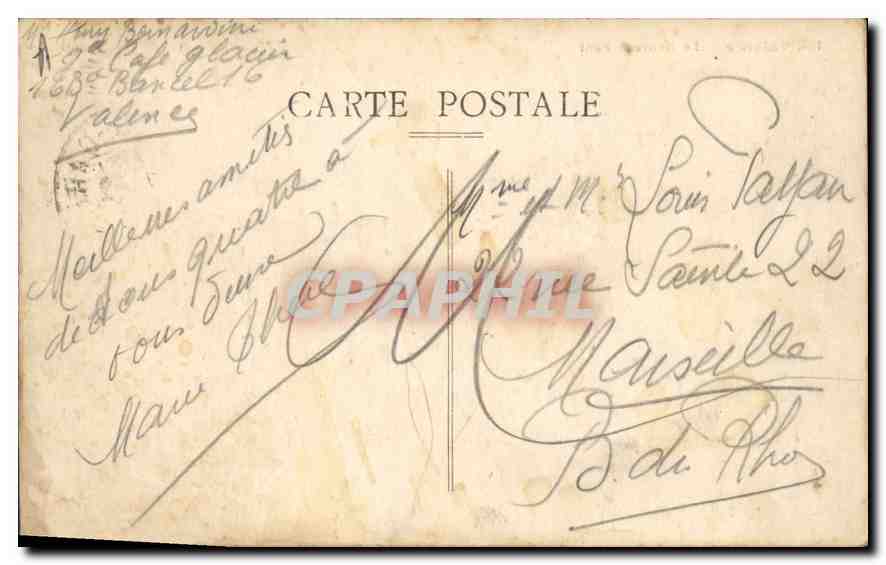 Mr Henry Bernardini
Gd Café Glacier
16 Bd Bancel 16
Valence
CARTE POSTALE
Meilleures amitiés
de tous quatre à
vous deux
Marie
Mme et Mr Louis
22 rue Sainte 22
Marseille
B. du Rhô
CPAPHIL